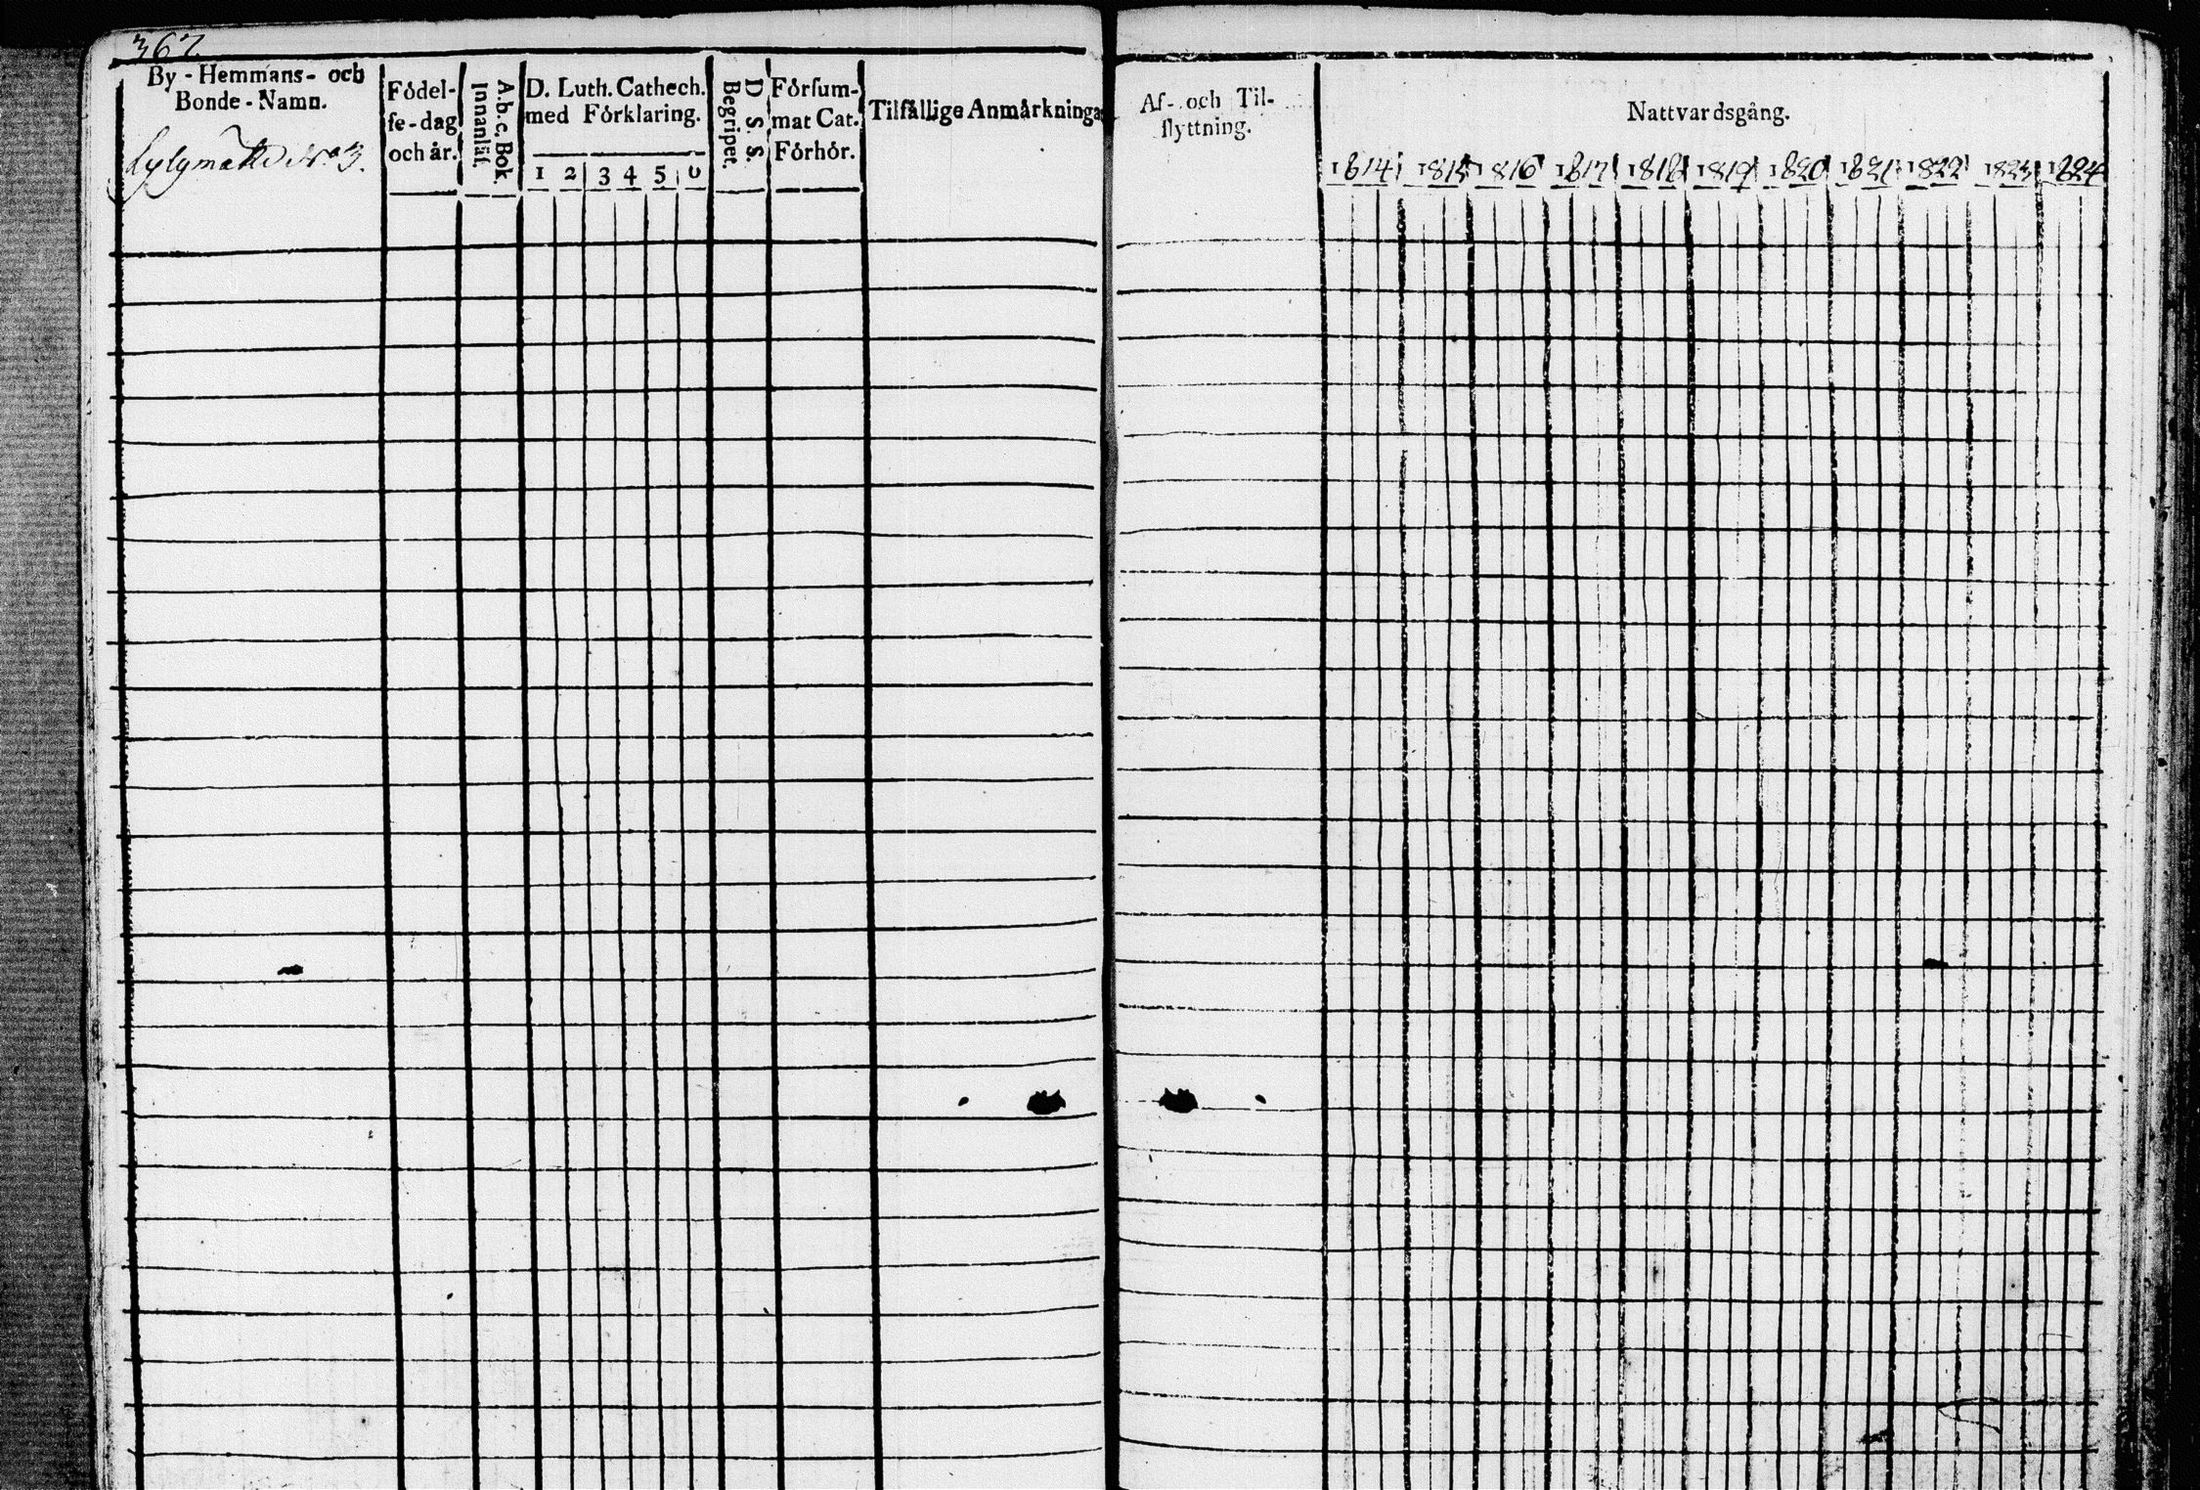 367
By - Hemmans- och
Bonde - Namn.
No 3.
Fódel-
se-dag
och år.
A. b. c. Bok.
Innanläs.
D. Luth. Cathech.
med Fórklaring.
1 2 3 4 5 6
D. S. S.
Begripet.
Fórsum-
mat Cat.
Fórhór.
Tilfállige Anmårkninga
Af- och Til-
flyttning.
Nattvardsgång.
1814 1815 1816 1817 1818 1819 1820 1821 1822 1823 1824